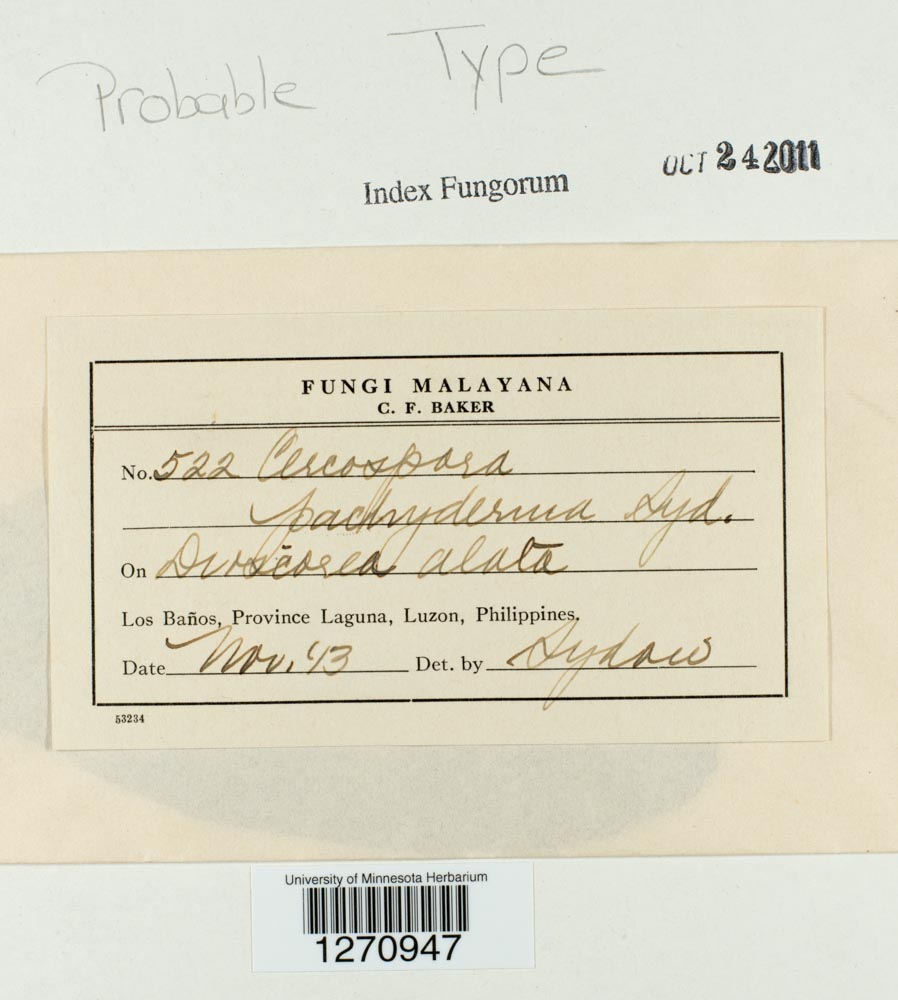 Probable Type
Index Fungorum
OCT 24 2011
FUNGI MALAYANA
C. F. BAKER
No. 522 Cercospora
pachyderma Syd.
On Dioscorea alata
Los Baños, Province Laguna, Luzon, Philippines.
Date Nov. '13 Det. by Sydow
53234
University of Minnesota Herbarium
1270947